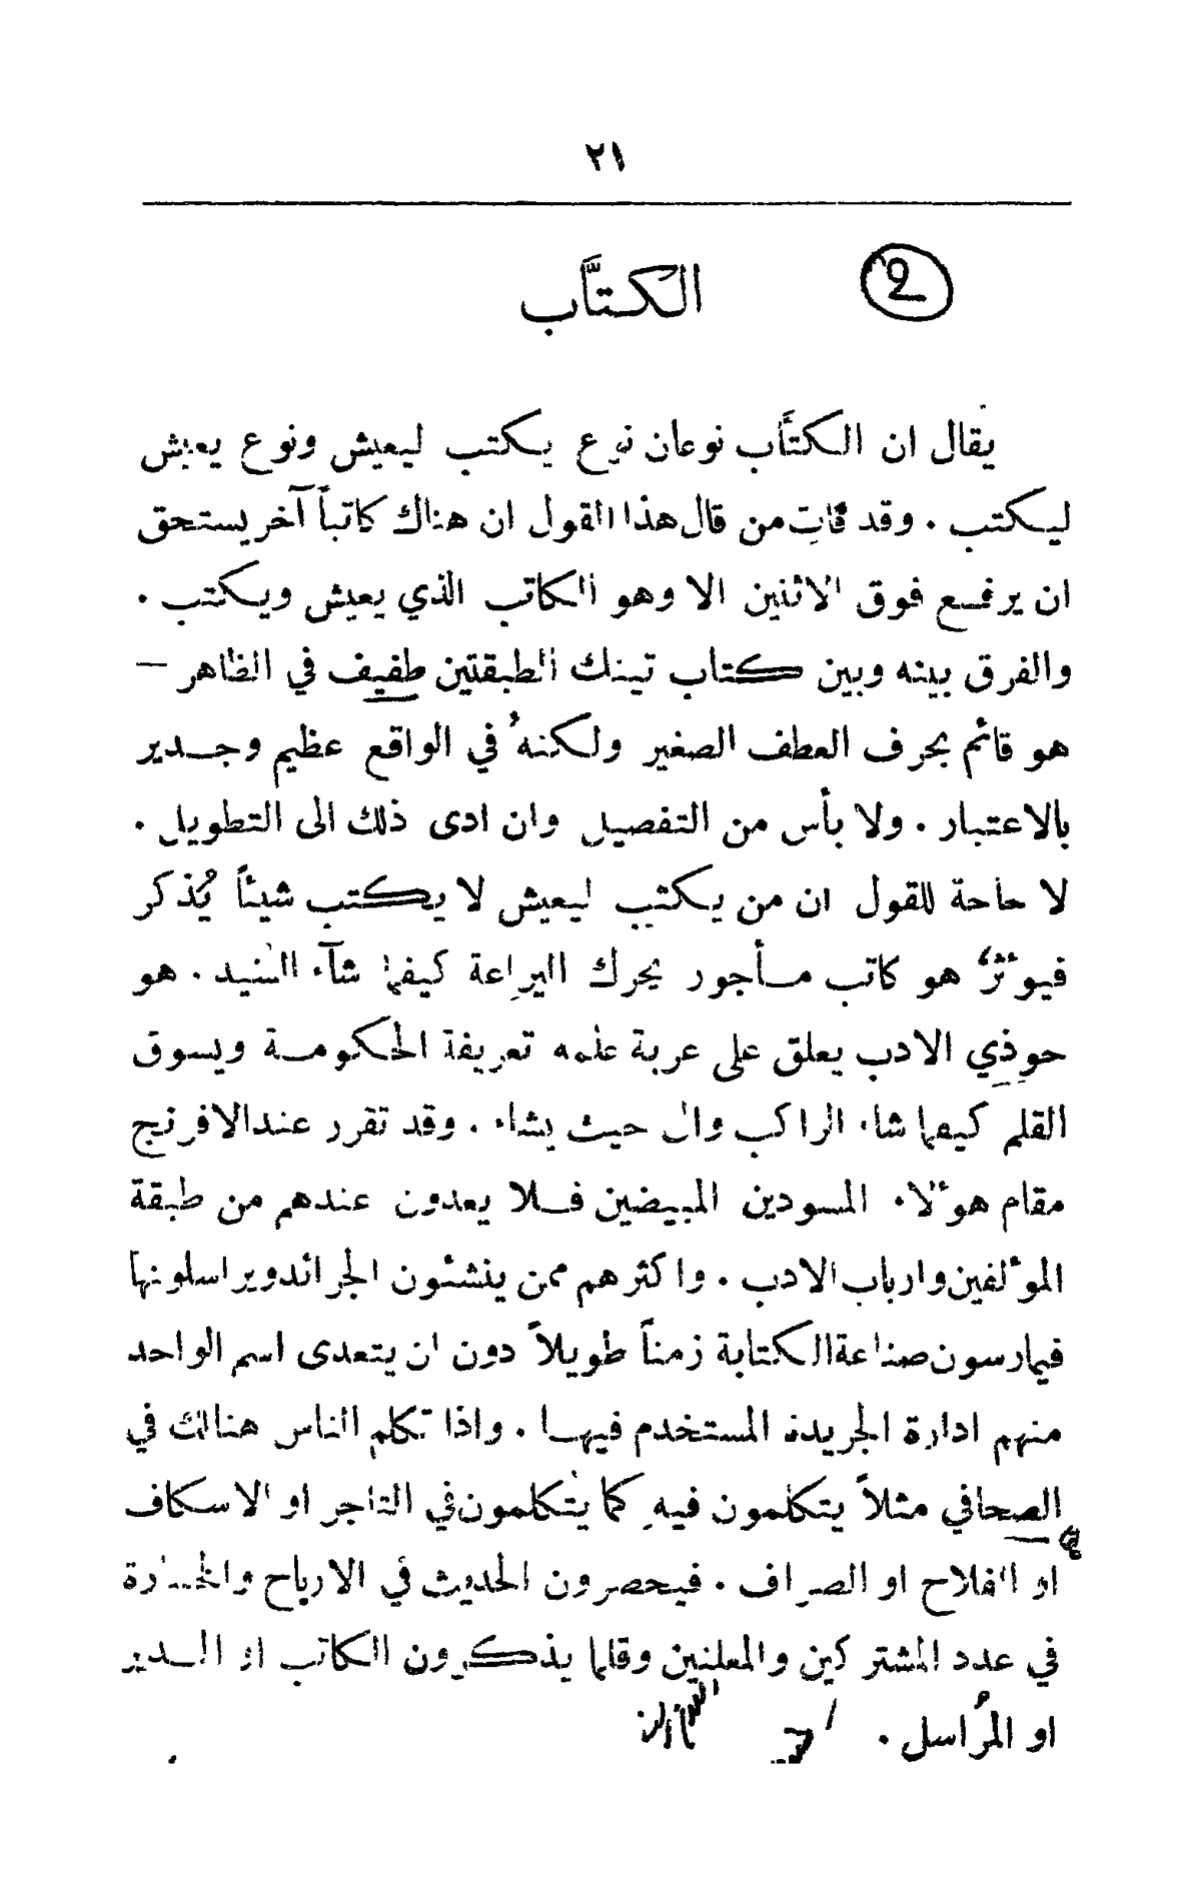 ٢١
الكتَّاب
2
يقال ان الكتَّاب نوعان نوع يكتب ليعيش ونوع يعيش
ليكتب . وقد فات من قال هذا القول ان هناك كاتباً آخر يستحق
ان يرفع فوق الاثنين الا وهو الكاتب الذي يعيش ويكتب .
والفرق بينه وبين كتاب تينك الطبقتين طفيف في الظاهر —
هو قائم بحرف العطف الصغير ولكنهُ في الواقع عظيم وجدير
بالاعتبار . ولا بأس من التفصيل وان ادى ذلك الى التطويل .
لا حاجة للقول ان من يكتب ليعيش لا يكتب شيئاً يُذكر
فيوءثر هو كاتب مأجور يحرك اليراعة كيفما شآء السيد . هو
حوذي الادب يعلق على عربة علمه تعريفة الحكومة ويسوق
القلم كيفما شاء الراكب وال حيث يشاء . وقد تقرر عند الافرنج
مقام هوءلاء المسودين المبيضين فلا يعدون عندهم من طبقة
الموءلفين وارباب الادب . واكثرهم ممن ينشئون الجرائد ويراسلونها
فيمارسون صناعة الكتابة زمناً طويلاً دون ان يتعدى اسم الواحد
منهم ادارة الجريدة المستخدم فيها . واذا تكلم الناس هنالك في
الصحافي مثلاً يتكلمون فيهِ كما يتكلمون في التاجر او الاسكاف
او الفلاح او الصراف . فيحصرون الحديث في الارباح والخسارة
في عدد المشتركين والمعلنين وقلما يذكرون الكاتب او المدير
او المُراسل .